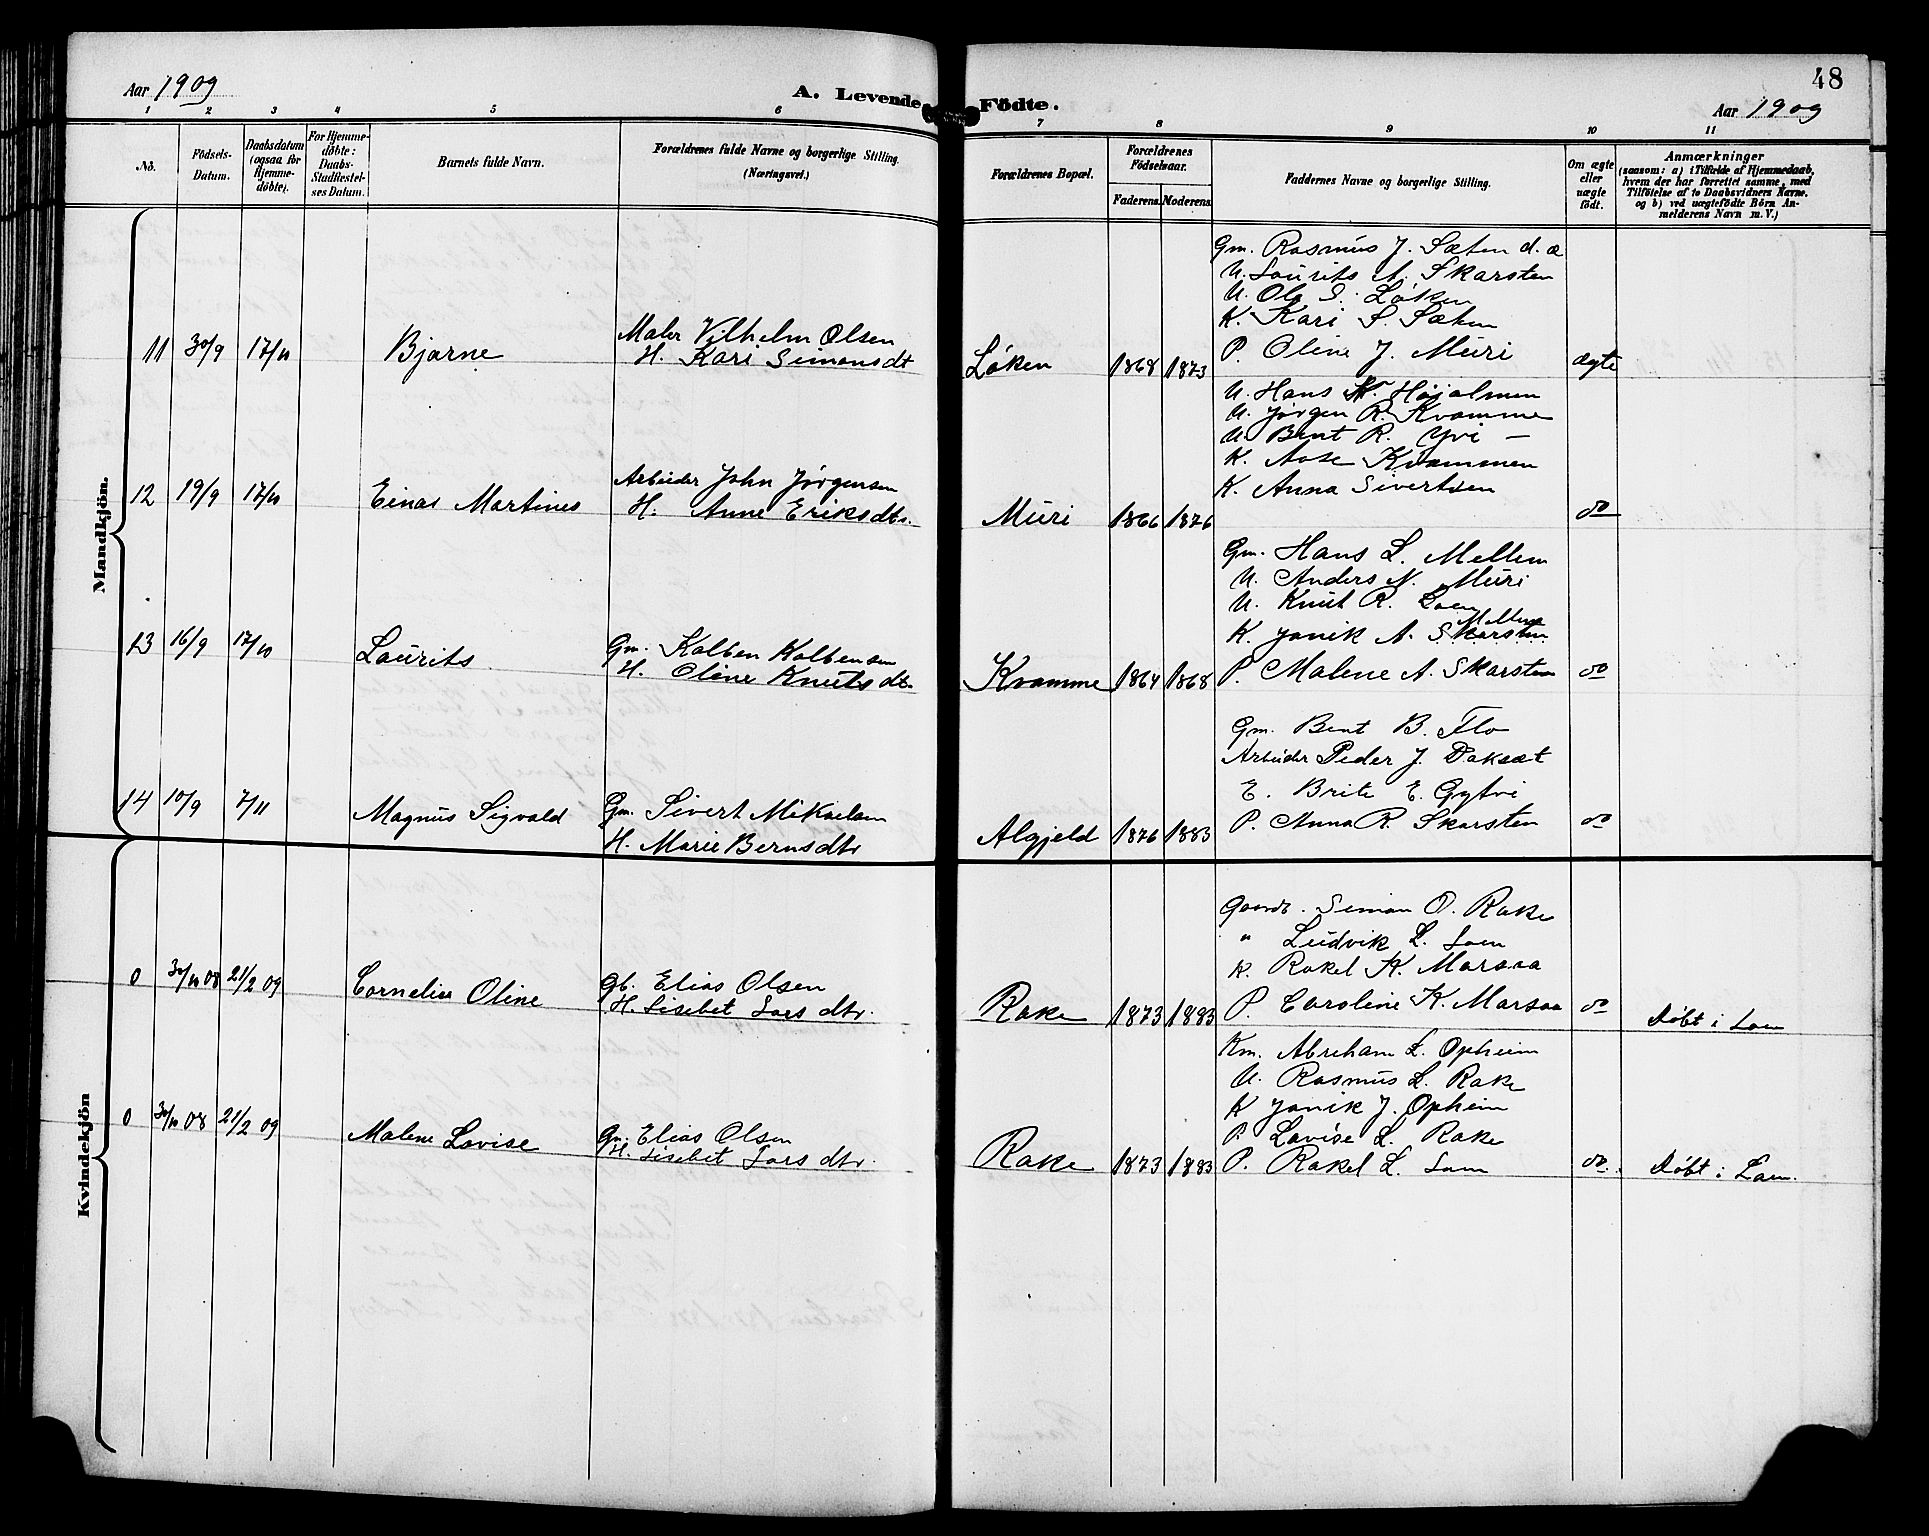 Aar 1909
A. Levende Födte.
48
Aar 1909
1 2 3 4 5 6 7 8 9 10 11
No.
Födsels-Datum.
Daabsdatum (ogsaa for Hjemme-döbte).
For Hjemme-döbte: Daabs-Stadfestel-ses Datum.
Barnets fulde Navn.
Forældrenes fulde Navne og borgerlige Stilling. (Næringsvei.)
Forældrenes Bopæl.
Forældrenes Födselsaar.
Faderens. Moderens.
Faddernes Navne og borgerlige Stilling.
Om ægte eller uægte födt.
Anmærkninger
(saasom: a) i Tilfælde af Hjemmedaab,
hvem der har forrettet samme, med
Tilföielse af to Daabsvidners Navne.
og b) ved uægtefödte Börn An-
melderens Navn m. V.)
Mandkjön.
Gm. Rasmus J. Sæten d. æ
U. Laurits A. Skarsten
U. Ole S. Løken
K. Kari S. Sæten
11 30/9 17/10 Bjarne Maler Vilhelm Olsen
H. Kari Simonsdt
Løken 1868 1873 P. Oline J. Muri ægte
U. Hans Højalmen
U. Jörgen R. Kvamme
U. Bent R. Yri —
K. Aase Kvammen
12 19/9 17/10 Einar Martinus Arbeider John Jörgensen
H. Anne Eriksdtr.
Muri 1866 1876 K. Anna Sivertsen do
Gm. Hans L. Mellem
U. Anders N. Muri
U. Knut R. Loen
K. Janik A. Skarsten Mellem
13 16/9 17/10 Laurits Gm. Kolben Kolbensen
H. Oline Knutsdt.
Kvamme 1864 1868 P. Malene A. Skarsten do
Gm. Bent B. Flo
Arbeider Peder J. Daksæt
E. Brite E. Gytri
14 10/9 7/11 Magnus Sigvald Gm. Sivert Mikaelsen
H. Marie Berns dtr
Algjeld 1876 1883 P. Anna R. Skarsten do
Kvindekjön
Gaardb. Simon O. Rake
" Ludvik L. Loen
K. Rakel K. Marsaa
0 30/10 08 21/2 09 Cornelia Oline Gb. Elias Olsen
H. Lisebet Lars dtr.
Rake 1873 1883 P. Caroline K. Marsaa do Døbt i Loen
Km. Abreham L. Opheim
U. Rasmus L. Rake
K Janik J. Opheim
P. Lovise L. Rake
0 30/10 08 21/2 09 Malene Lovise Gm. Elias Olsen
H. Lisebet Lars dtr.
Rake 1873 1883 P. Rakel L. Loen do. Døbt i Loen.